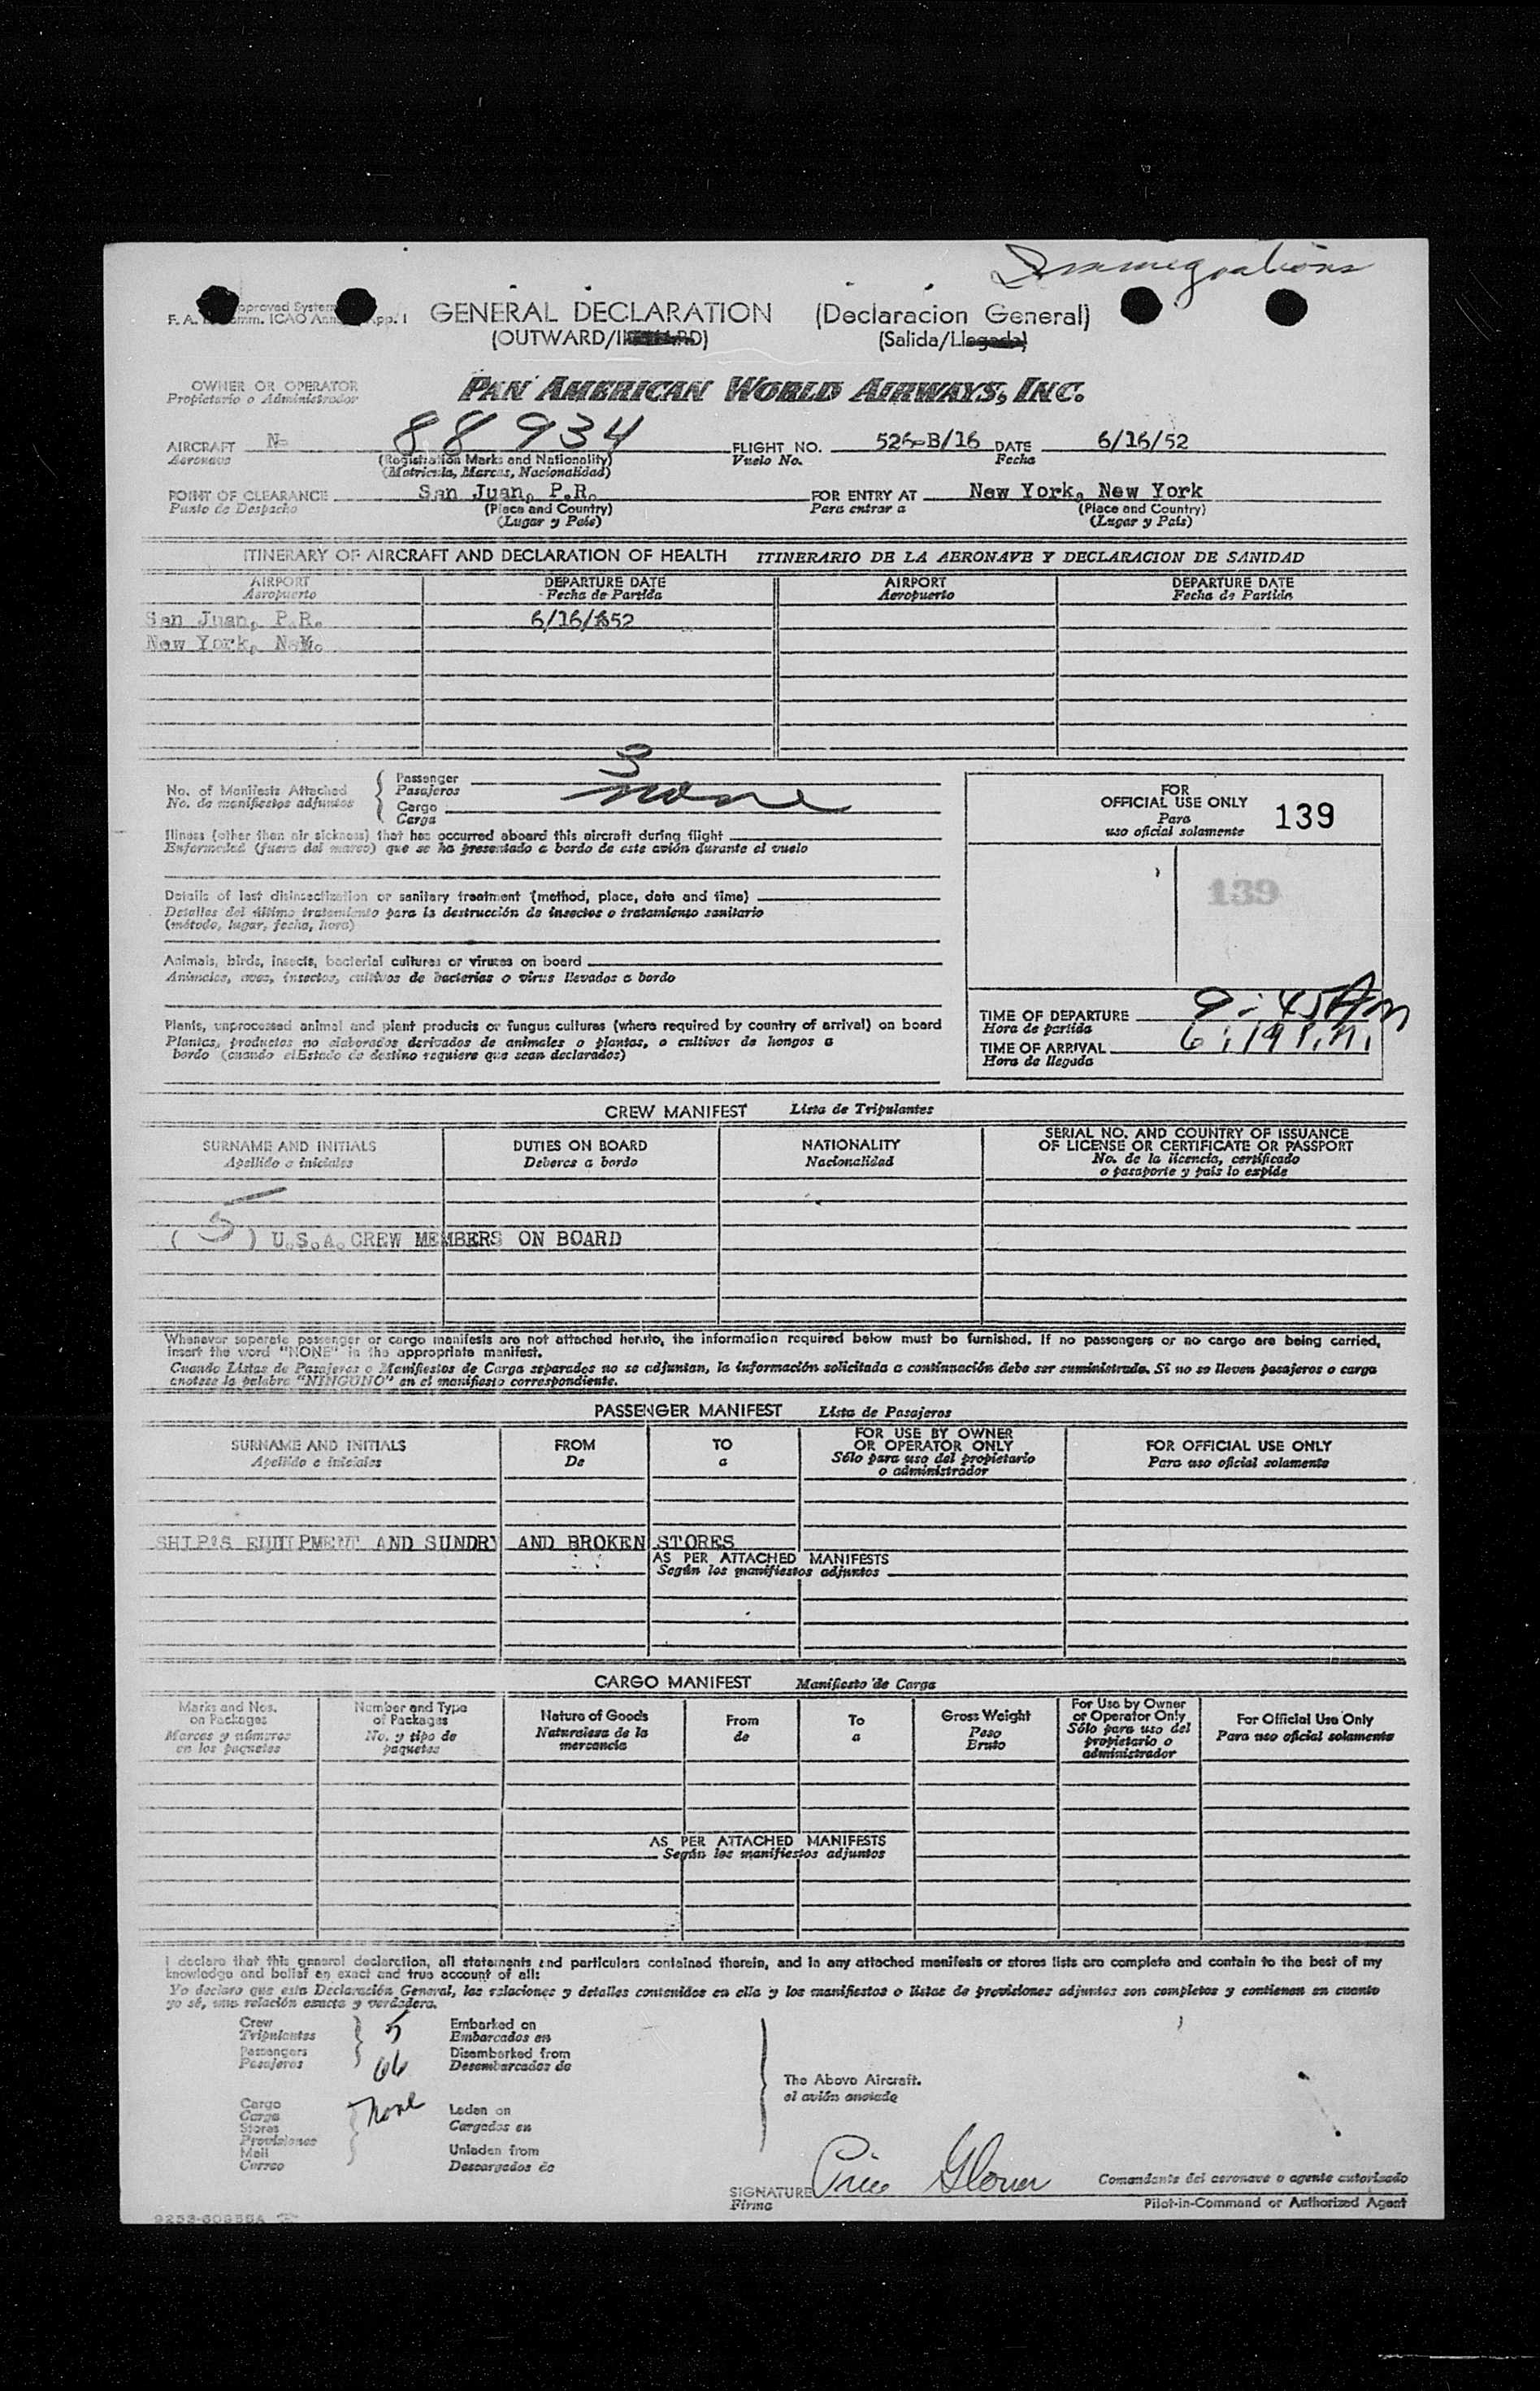 Immegrations
pproved System
F. A. mm. ICAO Ann pp. I
GENERAL DECLARATION (Declaracion General)
(OUTWARD/ D) (Salida/Llegada)
OWNER OR OPERATOR
Propietario o Administrador
PAN AMERICAN WORLD AIRWAYS, INC.
AIRCRAFT N- 88934 FLIGHT NO. 526-B/16 DATE 6/16/52
Aeronave (Registration Marks and Nationality) Vuelo No. Fecha
(Matricula, Marcas, Nacionalidad)
POINT OF CLEARANCE San Juan, P.R. FOR ENTRY AT New York, New York
Punto de Despacho (Place and Country) Para entrar a (Place and Country)
(Lugar y País) (Lugar y País)
ITINERARY OF AIRCRAFT AND DECLARATION OF HEALTH ITINERARIO DE LA AERONAVE Y DECLARACION DE SANIDAD
AIRPORT DEPARTURE DATE AIRPORT DEPARTURE DATE
Aeropuerto Fecha de Partida Aeropuerto Fecha de Partida
San Juan, P.R. 6/16/52
New York, N.Y.
No. of Manifests Attached
No. de manifiestos adjuntos
Passenger 3
Pasajeros
Cargo none
Carga
FOR
OFFICIAL USE ONLY 139
Para
uso oficial solamente
139
Illness (other than air sickness) that has occurred aboard this aircraft during flight
Enfermedad (fuera del mareo) que se ha presentado a bordo de este avión durante el vuelo
Details of last disinsectization or sanitary treatment (method, place, date and time)
Detalles del último tratamiento para la destrucción de insectos o tratamiento sanitario
(método, lugar, fecha, hora)
Animals, birds, insects, bacterial cultures or viruses on board
Animales, aves, insectos, cultivos de bacterias o virus llevados a bordo
Plants, unprocessed animal and plant products or fungus cultures (where required by country of arrival) on board
Plantas, productos no elaborados derivados de animales o plantas, o cultivos de hongos a
bordo (cuando el Estado de destino requiere que sean declarados)
TIME OF DEPARTURE 9:45 Am
Hora de partida
TIME OF ARRIVAL 6:19 P.M.
Hora de llegada
CREW MANIFEST Lista de Tripulantes
SURNAME AND INITIALS DUTIES ON BOARD NATIONALITY SERIAL NO. AND COUNTRY OF ISSUANCE
OF LICENSE OR CERTIFICATE OR PASSPORT
Apellido e iniciales Deberes a bordo Nacionalidad No. de la licencia, certificado
o pasaporte y país lo expide
( 5 ) U.S.A. CREW MEMBERS ON BOARD
Whenever separate passenger or cargo manifests are not attached hereto, the information required below must be furnished. If no passengers or no cargo are being carried,
insert the word "NONE" in the appropriate manifest.
Cuando Listas de Pasajeros o Manifiestos de Carga separados no se adjuntan, la información solicitada a continuación debe ser suministrada. Si no se lleven pasajeros o carga
anotese la palabra "NINGUNO" en el manifiesto correspondiente.
PASSENGER MANIFEST Lista de Pasajeros
SURNAME AND INITIALS FROM TO FOR USE BY OWNER
OR OPERATOR ONLY FOR OFFICIAL USE ONLY
Apellido e iniciales De a Sólo para uso del propietario
o administrador Para uso oficial solamente
SHIP'S EQUIPMENT AND SUNDRY AND BROKEN STORES
AS PER ATTACHED MANIFESTS
Según los manifiestos adjuntos
CARGO MANIFEST Manifiesto de Carga
Marks and Nos.
on Packages
Marcas y números
en los paquetes
Number and Type
of Packages
No. y tipo de
paquetes
Nature of Goods
Naturaleza de la
mercancía
From
de
To
a
Gross Weight
Peso
Bruto
For Use by Owner
or Operator Only
Sólo para uso del
propietario o
administrador
For Official Use Only
Para uso oficial solamente
AS PER ATTACHED MANIFESTS
Según los manifiestos adjuntos
I declare that this general declaration, all statements and particulars contained therein, and in any attached manifests or stores lists are complete and contain to the best of my
knowledge and belief an exact and true account of all:
Yo declaro que esta Declaración General, las relaciones y detalles contenidos en ella y los manifiestos o listas de provisiones adjuntos son completos y contienen en cuanto
yo sé, una relación exacta y verdadera.
Crew 5 Embarked on
Tripulantes Embarcados en
Passengers 66 Disembarked from
Pasajeros Desembarcados de
The Above Aircraft.
el avión anotado
Cargo none Laden on
Carga Cargados en
Stores
Provisiones
Mail Unladen from
Correo Descargados de
SIGNATURE Price Glover Comandante del aeronave o agente autorizado
Firma Pilot-in-Command or Authorized Agent